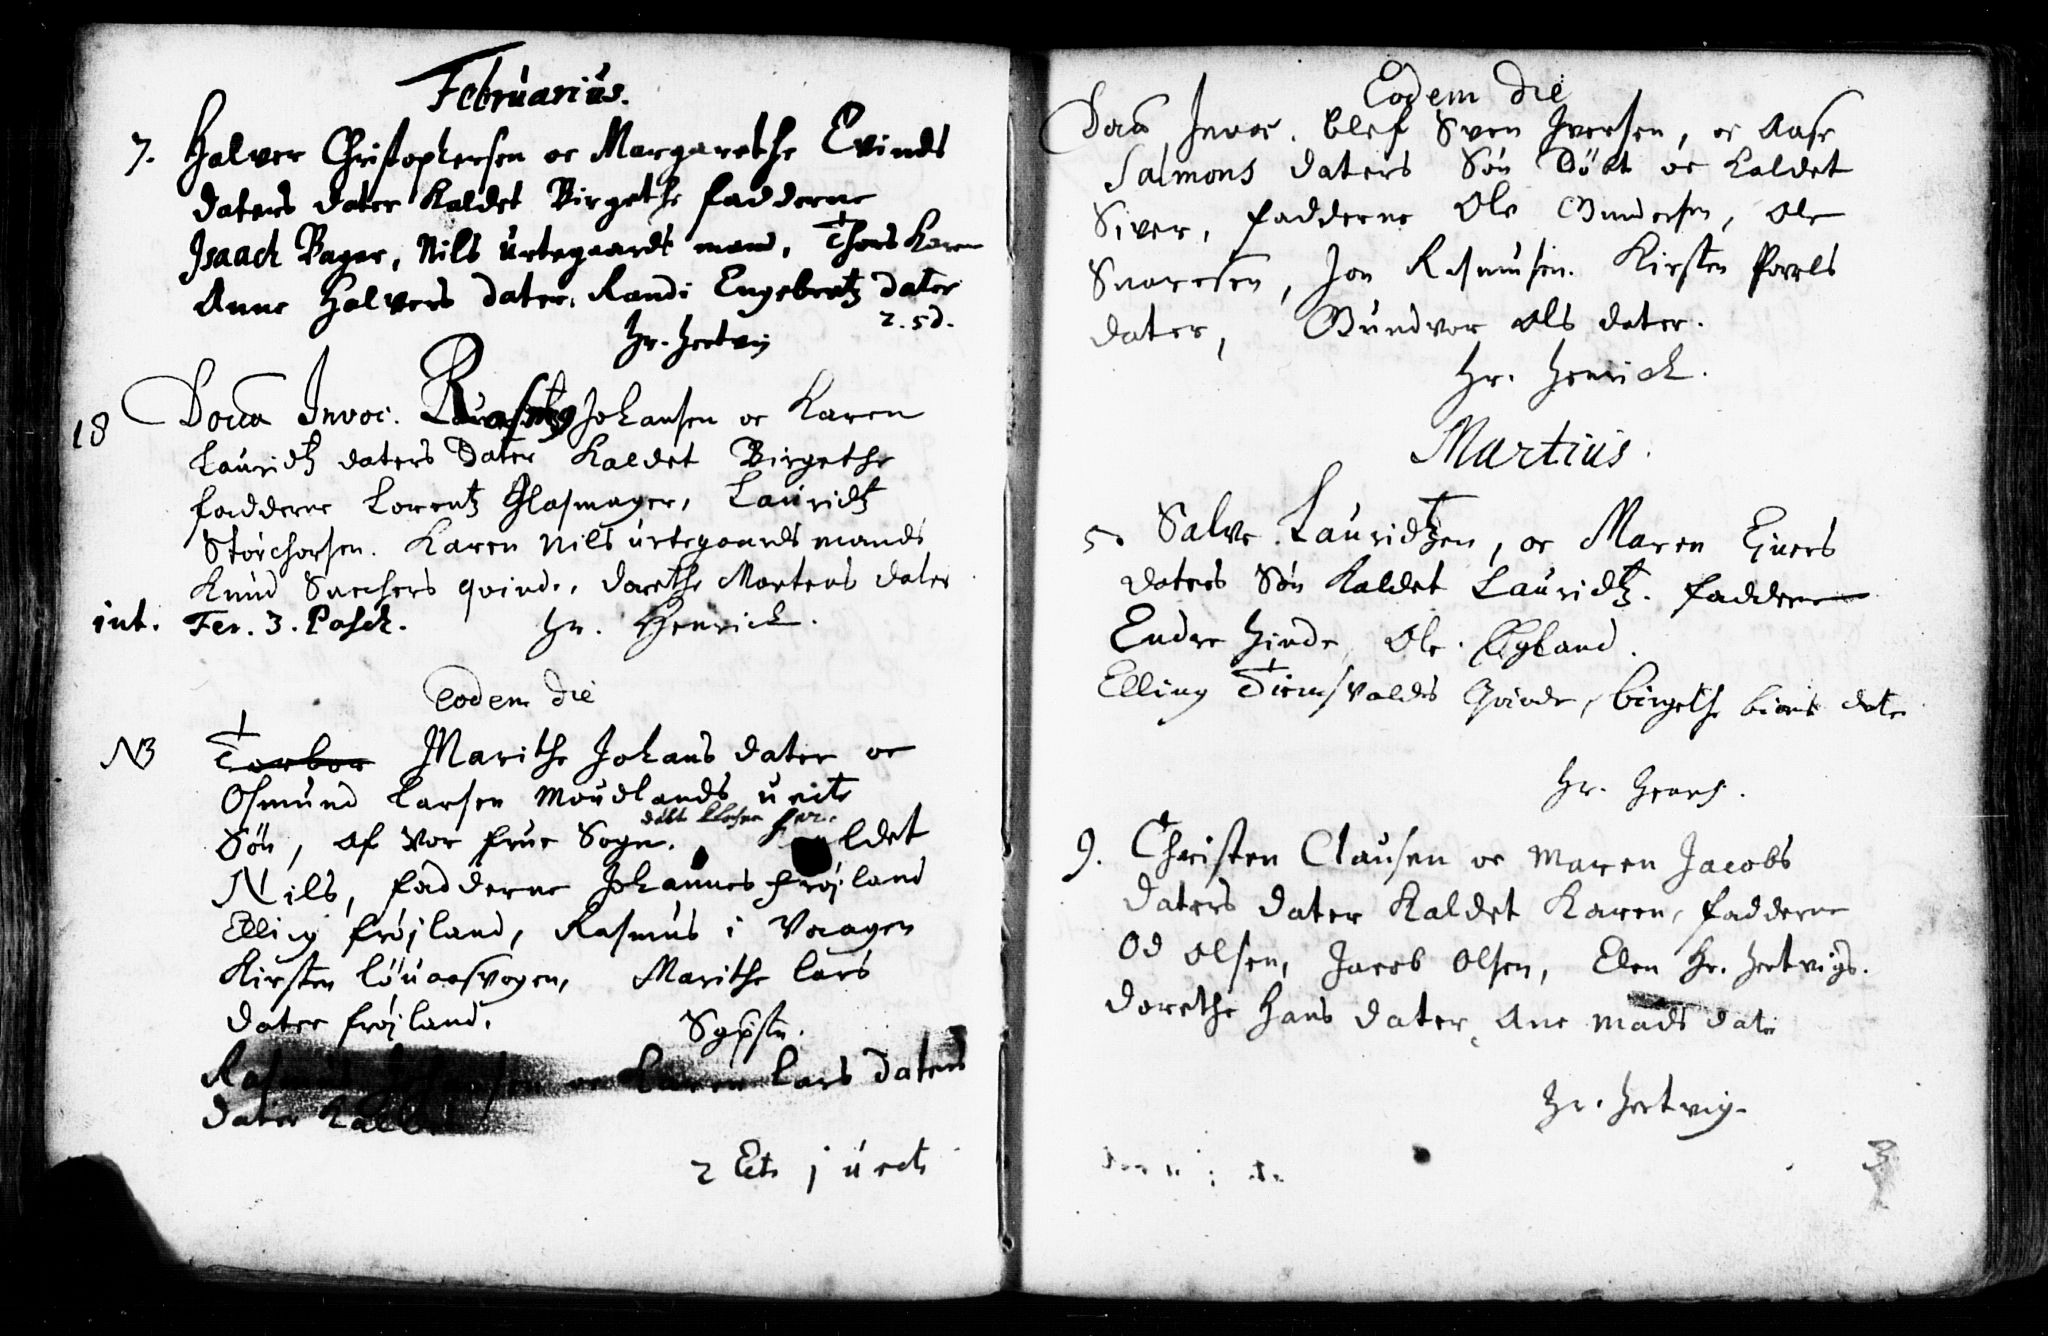 Februarius.
7. Halver Christophersen oc Margarethe Evinds
daters dater kaldet Birgethe fadderne
Isaach Bager, Nils urtegaards mand, Thors Karen
Anne Halvers dater, Randi Engebretz dater
2. sd.
Hr. Hertvig
18 Doca Invoc. Johansen oc Karen
Lauridtz daters Dater kaldet Birgethe
fadderne Lorentz Glasmager, Lauridtz
Karen Nils urtegaards mands
Knud quinde, dorethe Mortens dater
int. Fer. 3. Pasch. Hr. Henrick.
Eodem die
NB Torbor Marithe Johans dater oc
Osmund Larsen Moudlands uecte
Sön, af Vor frue Sogn. kaldet
Nils, fadderne Johannes fröjland
Elling fröjland, Rasmus i Vaagen
Kirsten Marithe Lars
dater fröjland.
Rasmus oc Karen Lars daters
dater kaldet
2 Ete j uecte
Eodem die
Invoc. blef Sven Iversen, oc Aase
Salmons daters Sön döbt oc kaldet
Siver, fadderne Ole Gundersen, Ole
Jon Rasmusen. Kirsten Povels
dater, Gundvor Ols dater.
Hr. Henrick.
Martius.
5. Salve Lauridtzen, oc Maren Ejvers
daters Sön kaldet Lauridtz. fadderne
Endre Hinde, Ole Egeland.
Elling Tiemsvolds Qvinde, birgethe dater
Hr.
9. Christen Clausen oc Maren Jacobs
daters dater kaldet Karen, fadderne
Od Olsen, Jacob Olsen, Elen Hr. Hertvigs.
dorethe Hans dater, Ane Mads dater
Hr. Hertvig.